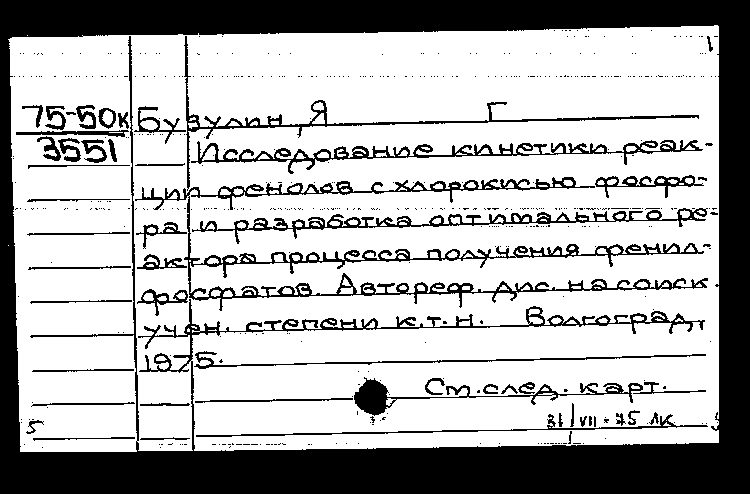 1
75-50к Бузулин, Я Г
3551 Исследование кинетики реак-
ции фенолов с хлорокисью фосфо-
ра и разработка оптимального ре-
актора процесса получения фенил-
фосфатов. Автореф. дис. на соиск.
учен. степени к.т.н. Волгоград,
1975.
См. след. карт.
5 31/VII-75 ЛК